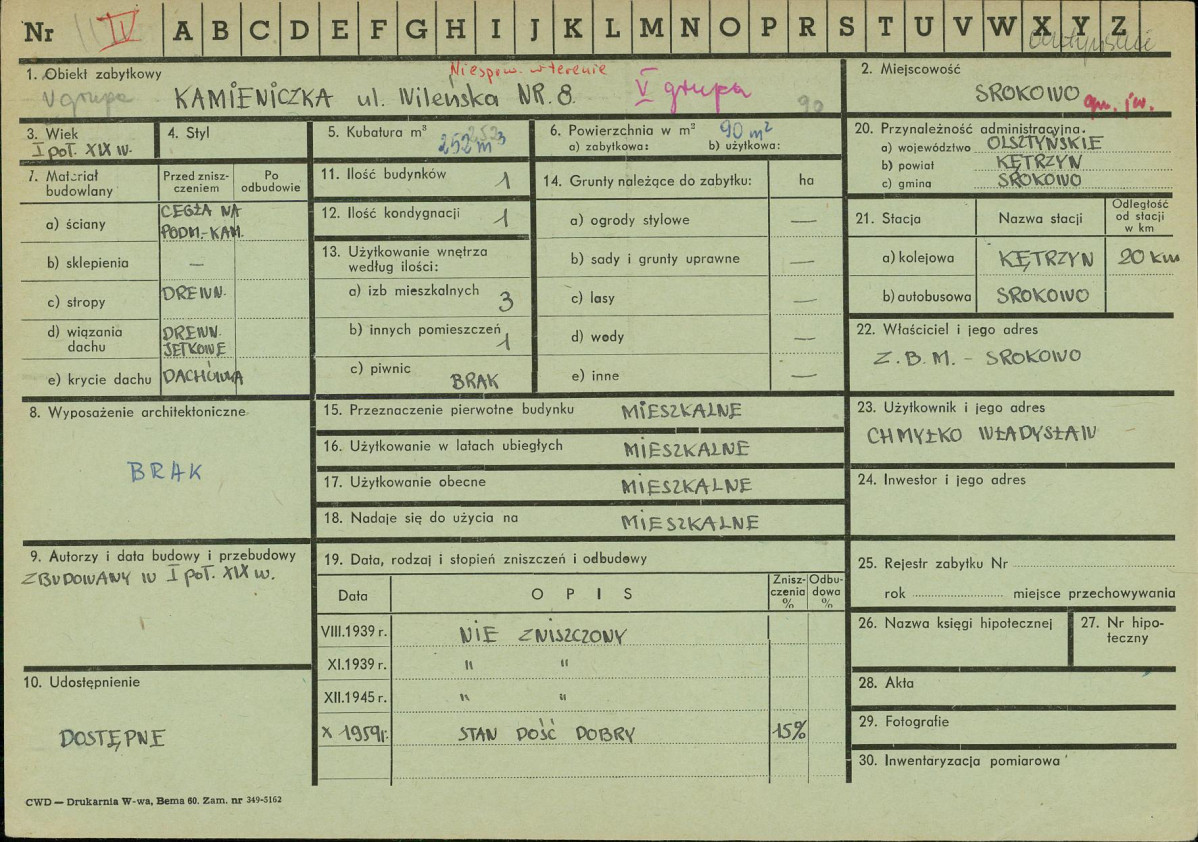 Nr IV A B C D E F G H I J K L M N O P R S T U V W X Y Z
olsztyńskie
1. Obiekt zabytkowy
Niespraw. w terenie
V grupa
KAMIENICZKA ul. Wileńska NR. 8.
V grupa
90
2. Miejscowość
SROKOWO
gm. jw.
3. Wiek
I poł. XIX w.
4. Styl
5. Kubatura m³
252
252 m³
6. Powierzchnia w m²
90 m²
a) zabytkowa: b) użytkowa:
20. Przynależność administracyjna.
a) województwo OLSZTYŃSKIE
b) powiat KĘTRZYN
c) gmina SROKOWO
7. Materiał budowlany
Przed zniszczeniem
Po odbudowie
a) ściany
CEGŁA NA
PODM.-KAM.
b) sklepienia —
c) stropy DREWN.
d) wiązania dachu
DREWN.
JĘTKOWE
e) krycie dachu DACHÓWKA
11. Ilość budynków 1
12. Ilość kondygnacji 1
13. Użytkowanie wnętrza
według ilości:
a) izb mieszkalnych 3
b) innych pomieszczeń 1
c) piwnic BRAK
14. Grunty należące do zabytku: ha
a) ogrody stylowe —
b) sady i grunty uprawne —
c) lasy —
d) wody —
e) inne —
21. Stacja
Nazwa stacji
Odległość
od stacji
w km
a) kolejowa KĘTRZYN 20 km
b) autobusowa SROKOWO
22. Właściciel i jego adres
Z.B.M. - SROKOWO
8. Wyposażenie architektoniczne
BRAK
15. Przeznaczenie pierwotne budynku MIESZKALNE
16. Użytkowanie w latach ubiegłych MIESZKALNE
17. Użytkowanie obecne MIESZKALNE
18. Nadaje się do użycia na MIESZKALNE
23. Użytkownik i jego adres
CHMYŁKO WŁADYSŁAW
24. Inwestor i jego adres
9. Autorzy i data budowy i przebudowy
ZBUDOWANY W I poł. XIX w.
10. Udostępnienie
DOSTĘPNE
19. Data, rodzaj i stopień zniszczeń i odbudowy
Data
O P I S
Zniszczenia %
Odbudowa %
VIII.1939 r. NIE ZNISZCZONY
XI.1939 r. " "
XII.1945 r. " "
X 1959 r. STAN DOŚĆ DOBRY 15%
25. Rejestr zabytku Nr
rok miejsce przechowywania
26. Nazwa księgi hipotecznej
27. Nr hipoteczny
28. Akta
29. Fotografie
30. Inwentaryzacja pomiarowa
CWD — Drukarnia W-wa, Bema 60. Zam. nr 349-5162